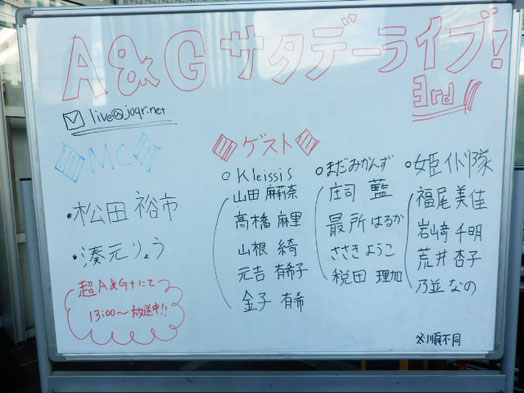 A&Gサタデーライブ!
3rd
live@joqr.net
MC
・松田 裕市
・湊元りょう
超A&G+にて
13:00〜放送中!!
ゲスト
○Kleissis
山田 麻莉奈
高橋 麻里
山根 綺
元吉 有希子
金子 有希
○まだみかんず
庄司 藍
最所 はるか
ささき ようこ
税田 理加
○姫仆隊
福尾 美佳
岩崎 千明
荒井 杏子
乃並 なの
※順不同